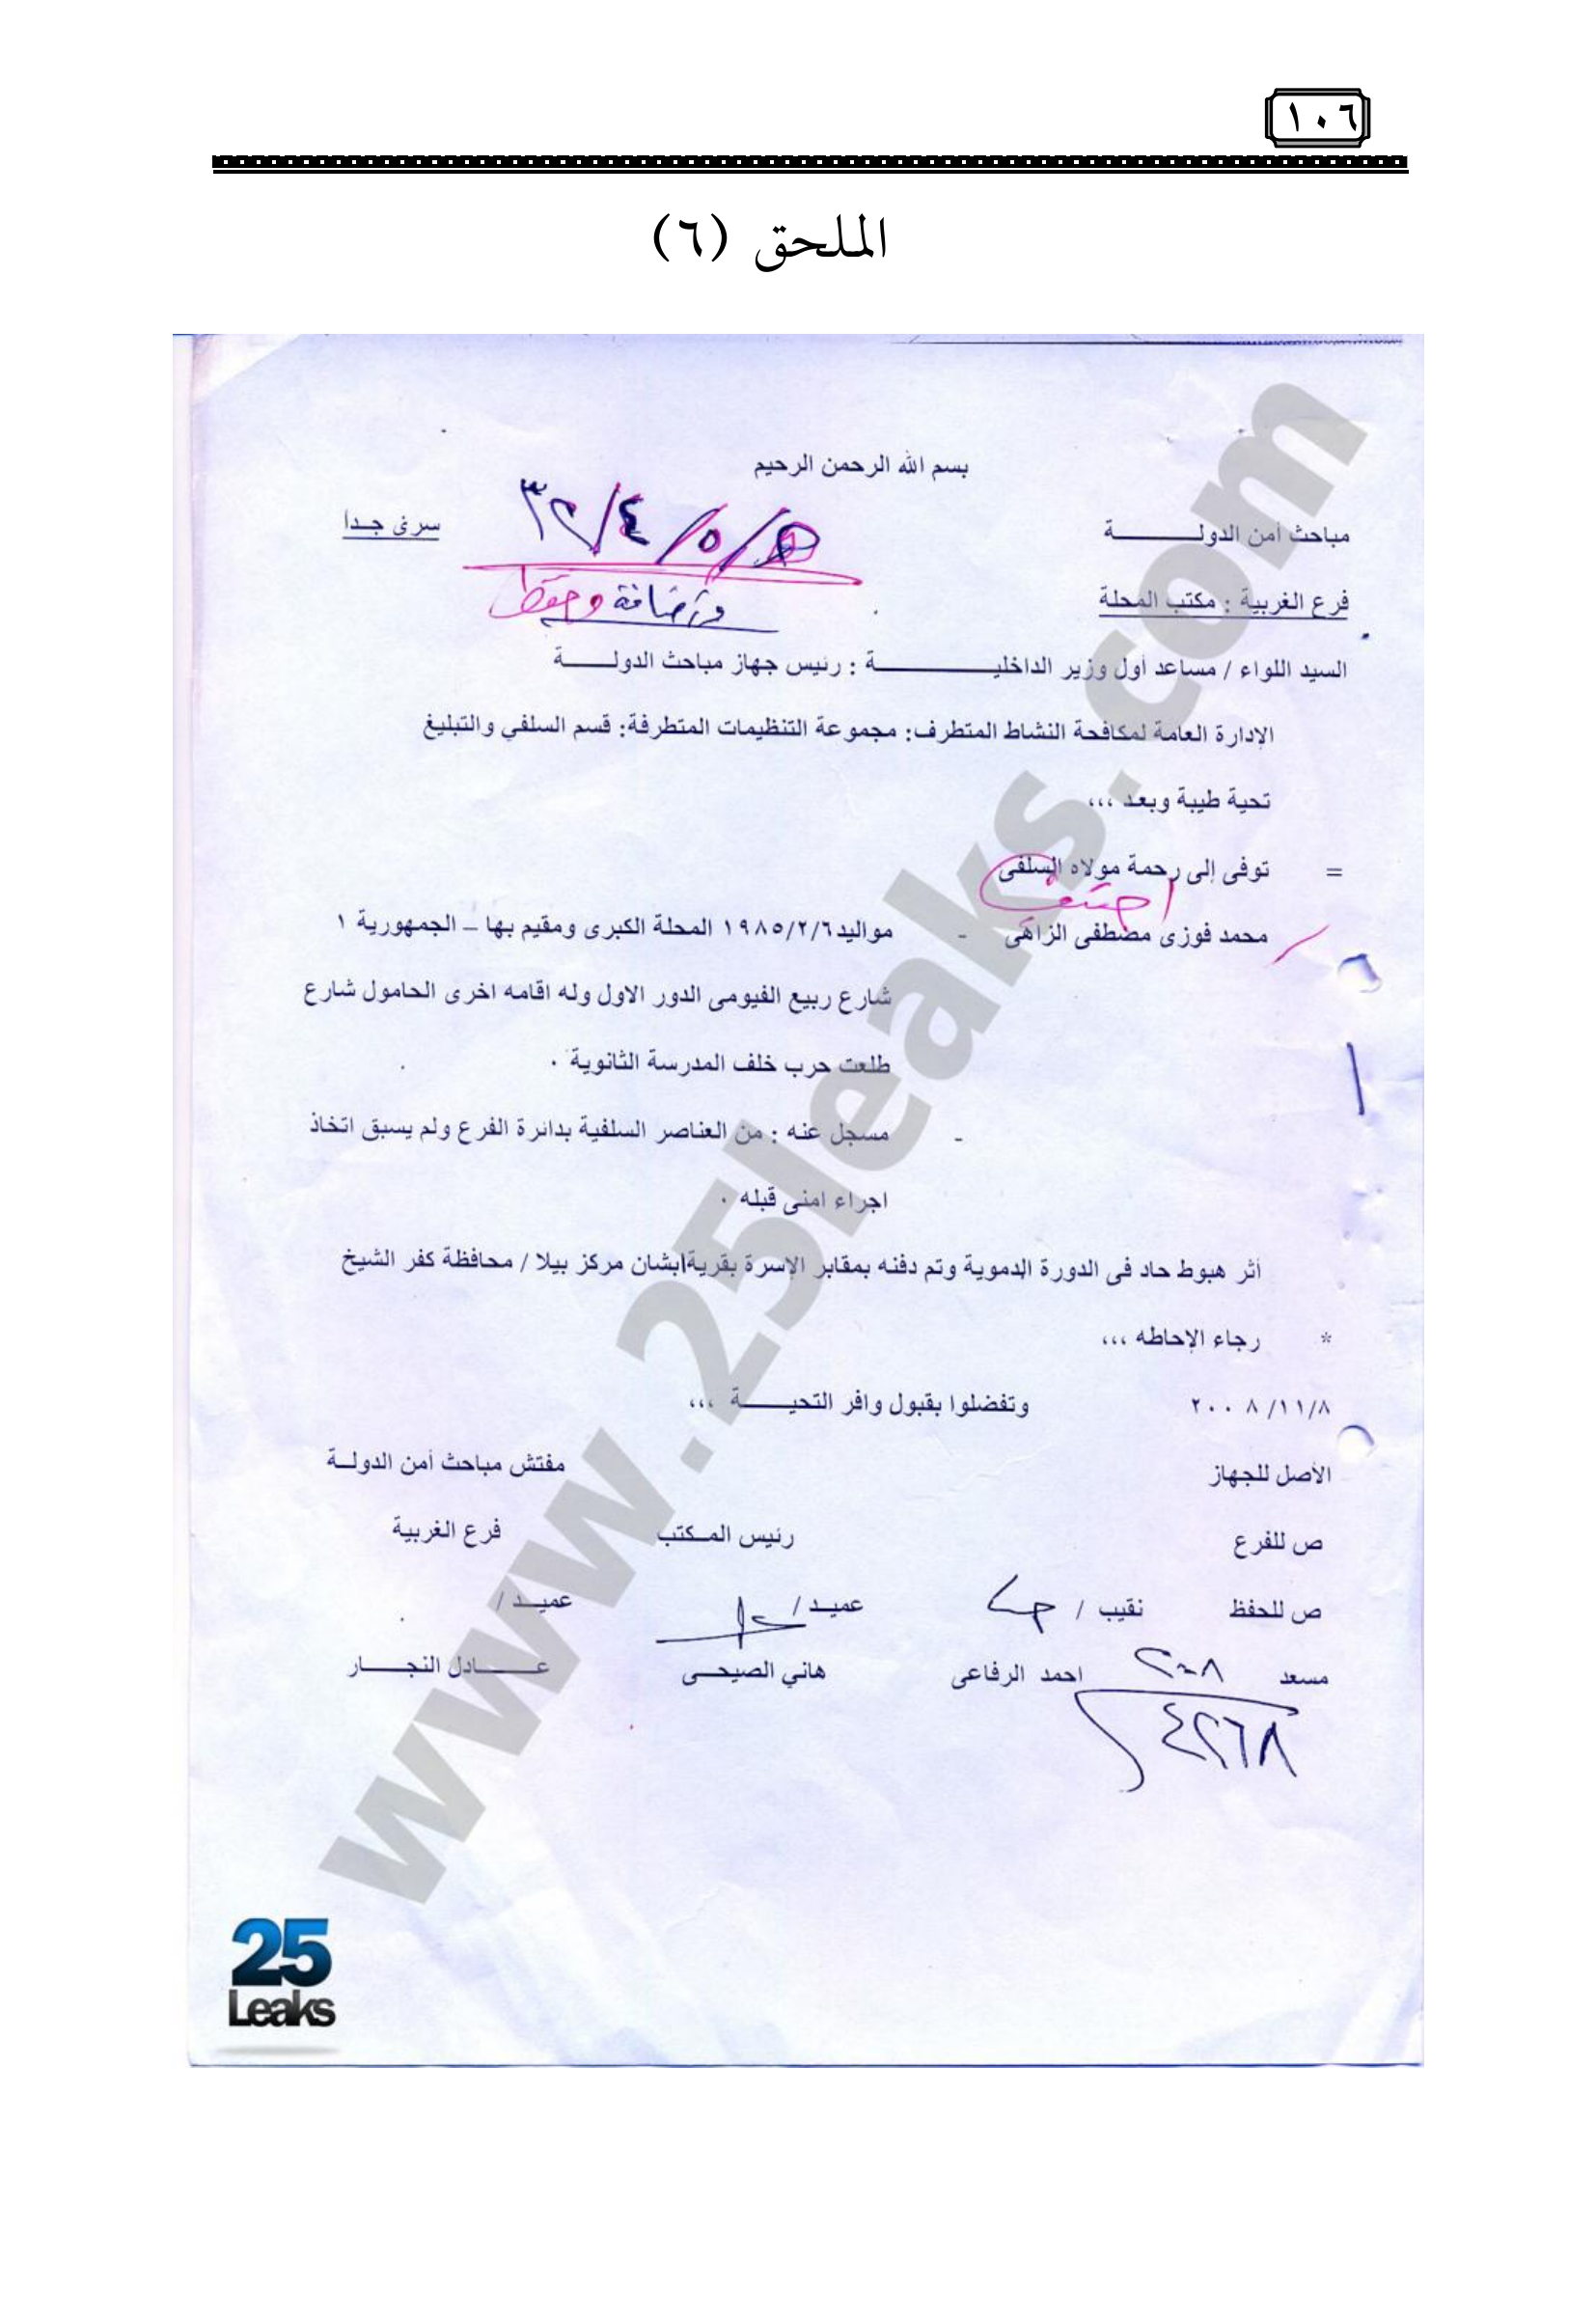 ١٠٦
الملحق (٦)
بسم الله الرحمن الرحيم
٣٢/٤/٥/
سرى جدا
مباحث أمن الدولـــــــة
وإضافة وحفظ
فرع الغربية : مكتب المحلة
السيد اللواء / مساعد أول وزير الداخليـــــــــــة : رئيس جهاز مباحث الدولـــــة
الإدارة العامة لمكافحة النشاط المتطرف: مجموعة التنظيمات المتطرفة: قسم السلفي والتبليغ
تحية طيبة وبعد ،،،
= توفى إلى رحمة مولاه السلفى
محمد فوزى مصطفى الزاهى - مواليد ١٩٨٥/٢/٦ المحلة الكبرى ومقيم بها – الجمهورية ١
شارع ربيع الفيومى الدور الاول وله اقامه اخرى الحامول شارع
طلعت حرب خلف المدرسة الثانوية .
- مسجل عنه : من العناصر السلفية بدائرة الفرع ولم يسبق اتخاذ
اجراء امنى قبله .
أثر هبوط حاد فى الدورة الدموية وتم دفنه بمقابر الإسرة بقرية ابشان مركز بيلا / محافظة كفر الشيخ
* رجاء الإحاطه ،،،
٢٠٠٨/١١/٨ وتفضلوا بقبول وافر التحيـــــة ،،،
الأصل للجهاز مفتش مباحث أمن الدولـة
ص للفرع رئيس المـكتب فرع الغربية
ص للحفظ نقيب / عميـد / عميـــد /
مسعد احمد الرفاعى هاني الصيحـى عـــــادل النجـــــار
٢٠٠٨
٤٢٦٨
www.25leaks.com
25
Leaks